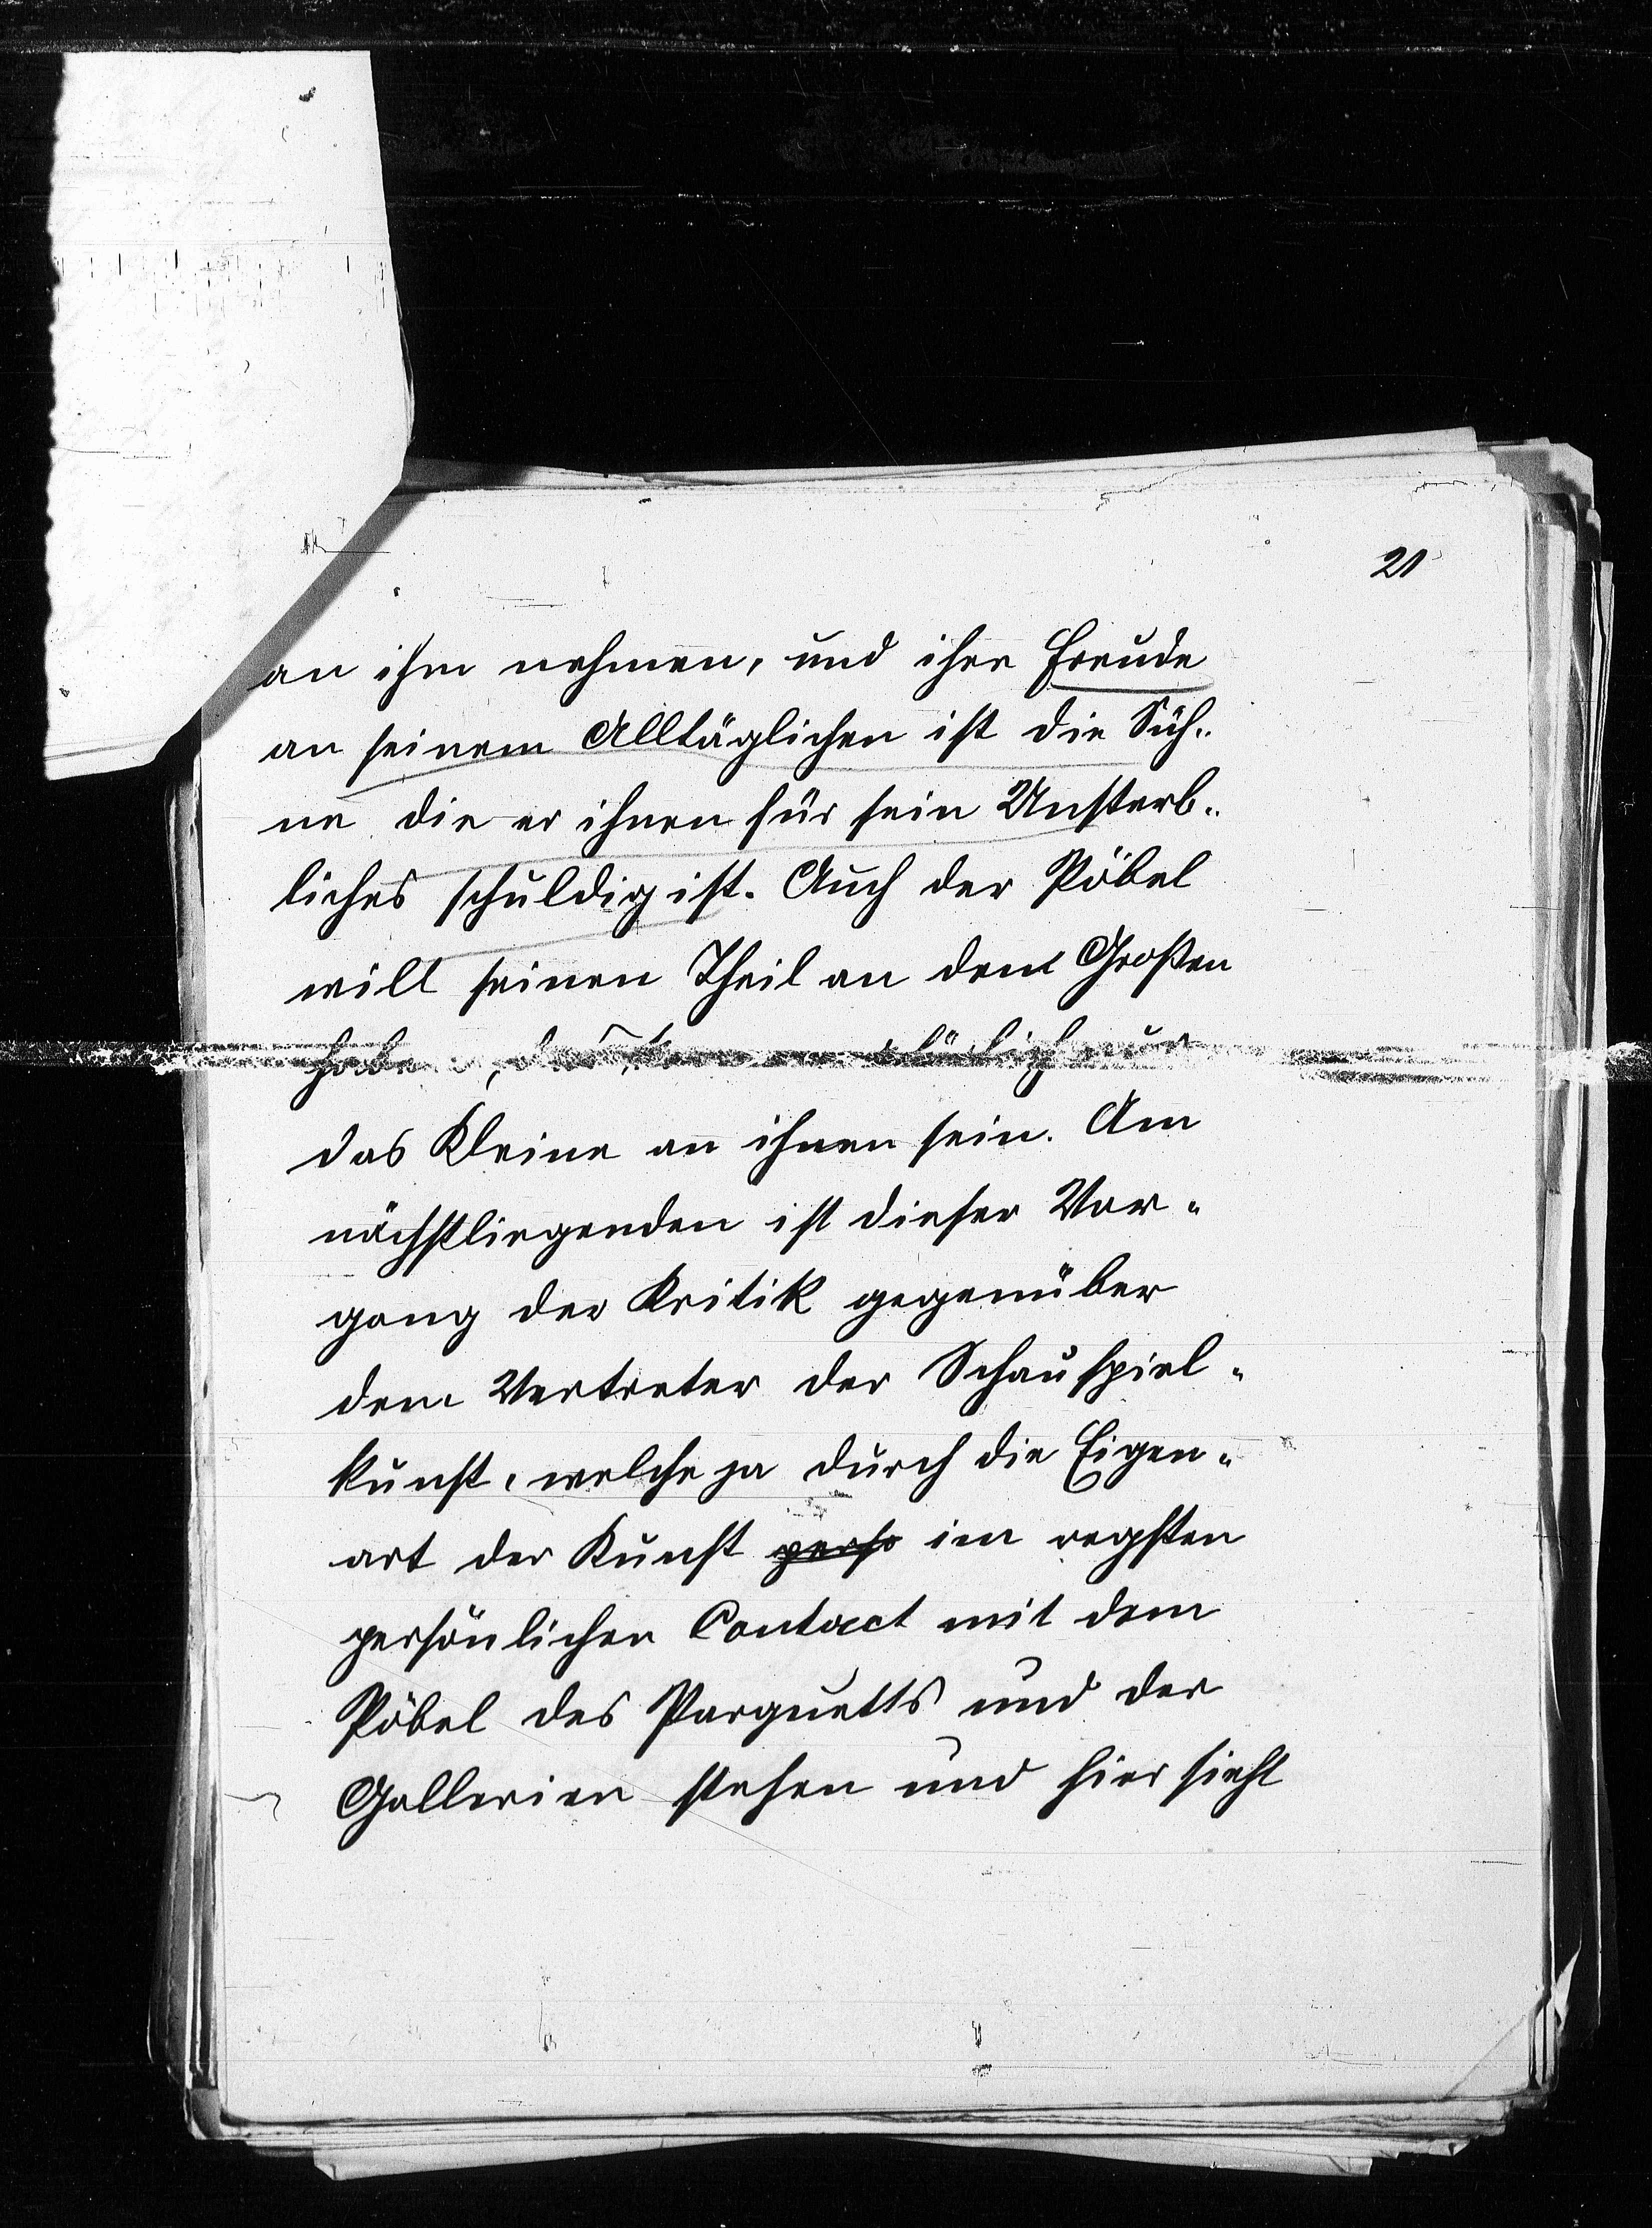 21
an ihm nehmen, und ihre Freude
an seinem Alltäglichen ist die Süh„
ne die er ihnen für sein Unsterb„
liches schuldig ist. Auch der Pöbel
will seinen Theil an dem Großen
haben, natürlich nur
das Kleine an ihnen sein. Am
nächstliegenden ist dieser Vor„
gang der Kritik gegenüber
dem Vertreter der Schauspiel„
kunst, welche ja durch die Eigen„
art der Kunst perso im regsten
persönlichen Contact mit dem
Pöbel des Parquetts und der
Gallerien stehen und hier sieht